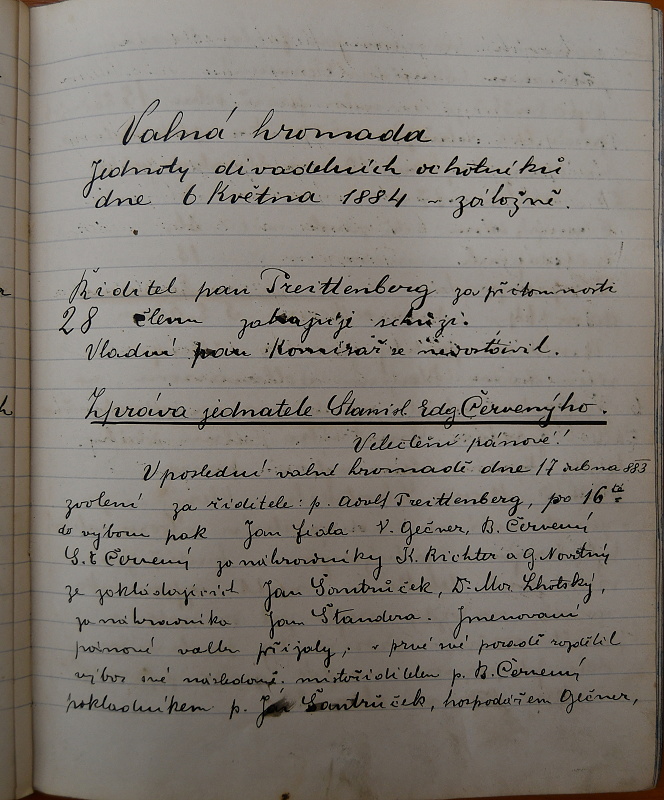 Valná hromada
Jednoty divadelních ochotníků
dne 6 Května 1884 v záložně.
Ředitel pan Treittenberg za přítomnosti
28 členu zahajuje schůzi.
Vladní pan Komisař se nedostavil.
Zpráva jednatele Stanisl Edg Červenýho.
Velectění pánové!
V poslední valné hromadě dne 17 dubna 883
zvolení za ředitele: p. Adolf Treittenberg, po 16té
do výboru pak Jan Fiala V. Gečner, B. Červený
S. E Červený za náhrovníky K. Richter a G. Novotný
ze zakládajících Jan Šantrůček, Dr. Mor. Lhotský,
za náhradníka Jan Štandera. Jmenovaní
pánové volbu přijaly, v prvé své poradě rozdělil
výbor své následovně. místoředitelem p. B. Červený
pokladníkem p. Jan Šantrůček, hospodářem Gečner,